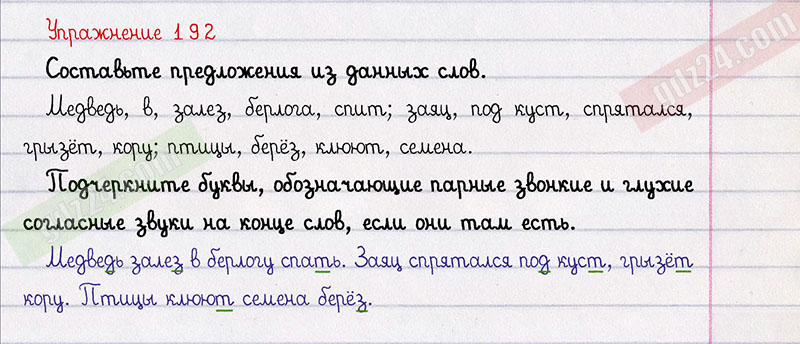 Упражнение 192
Составьте предложения из данных слов.
Медведь, в, залез, берлога, спит; заяц, под куст, спрятался,
грызёт, кору; птицы, берёз, клюют, семена.
Подчеркните буквы, обозначающие парные звонкие и глухие
согласные звуки на конце слов, если они там есть.
Медведь залез в берлогу спать. Заяц спрятался под куст, грызёт
кору. Птицы клюют семена берёз.
gdz24.com
gdz24.com